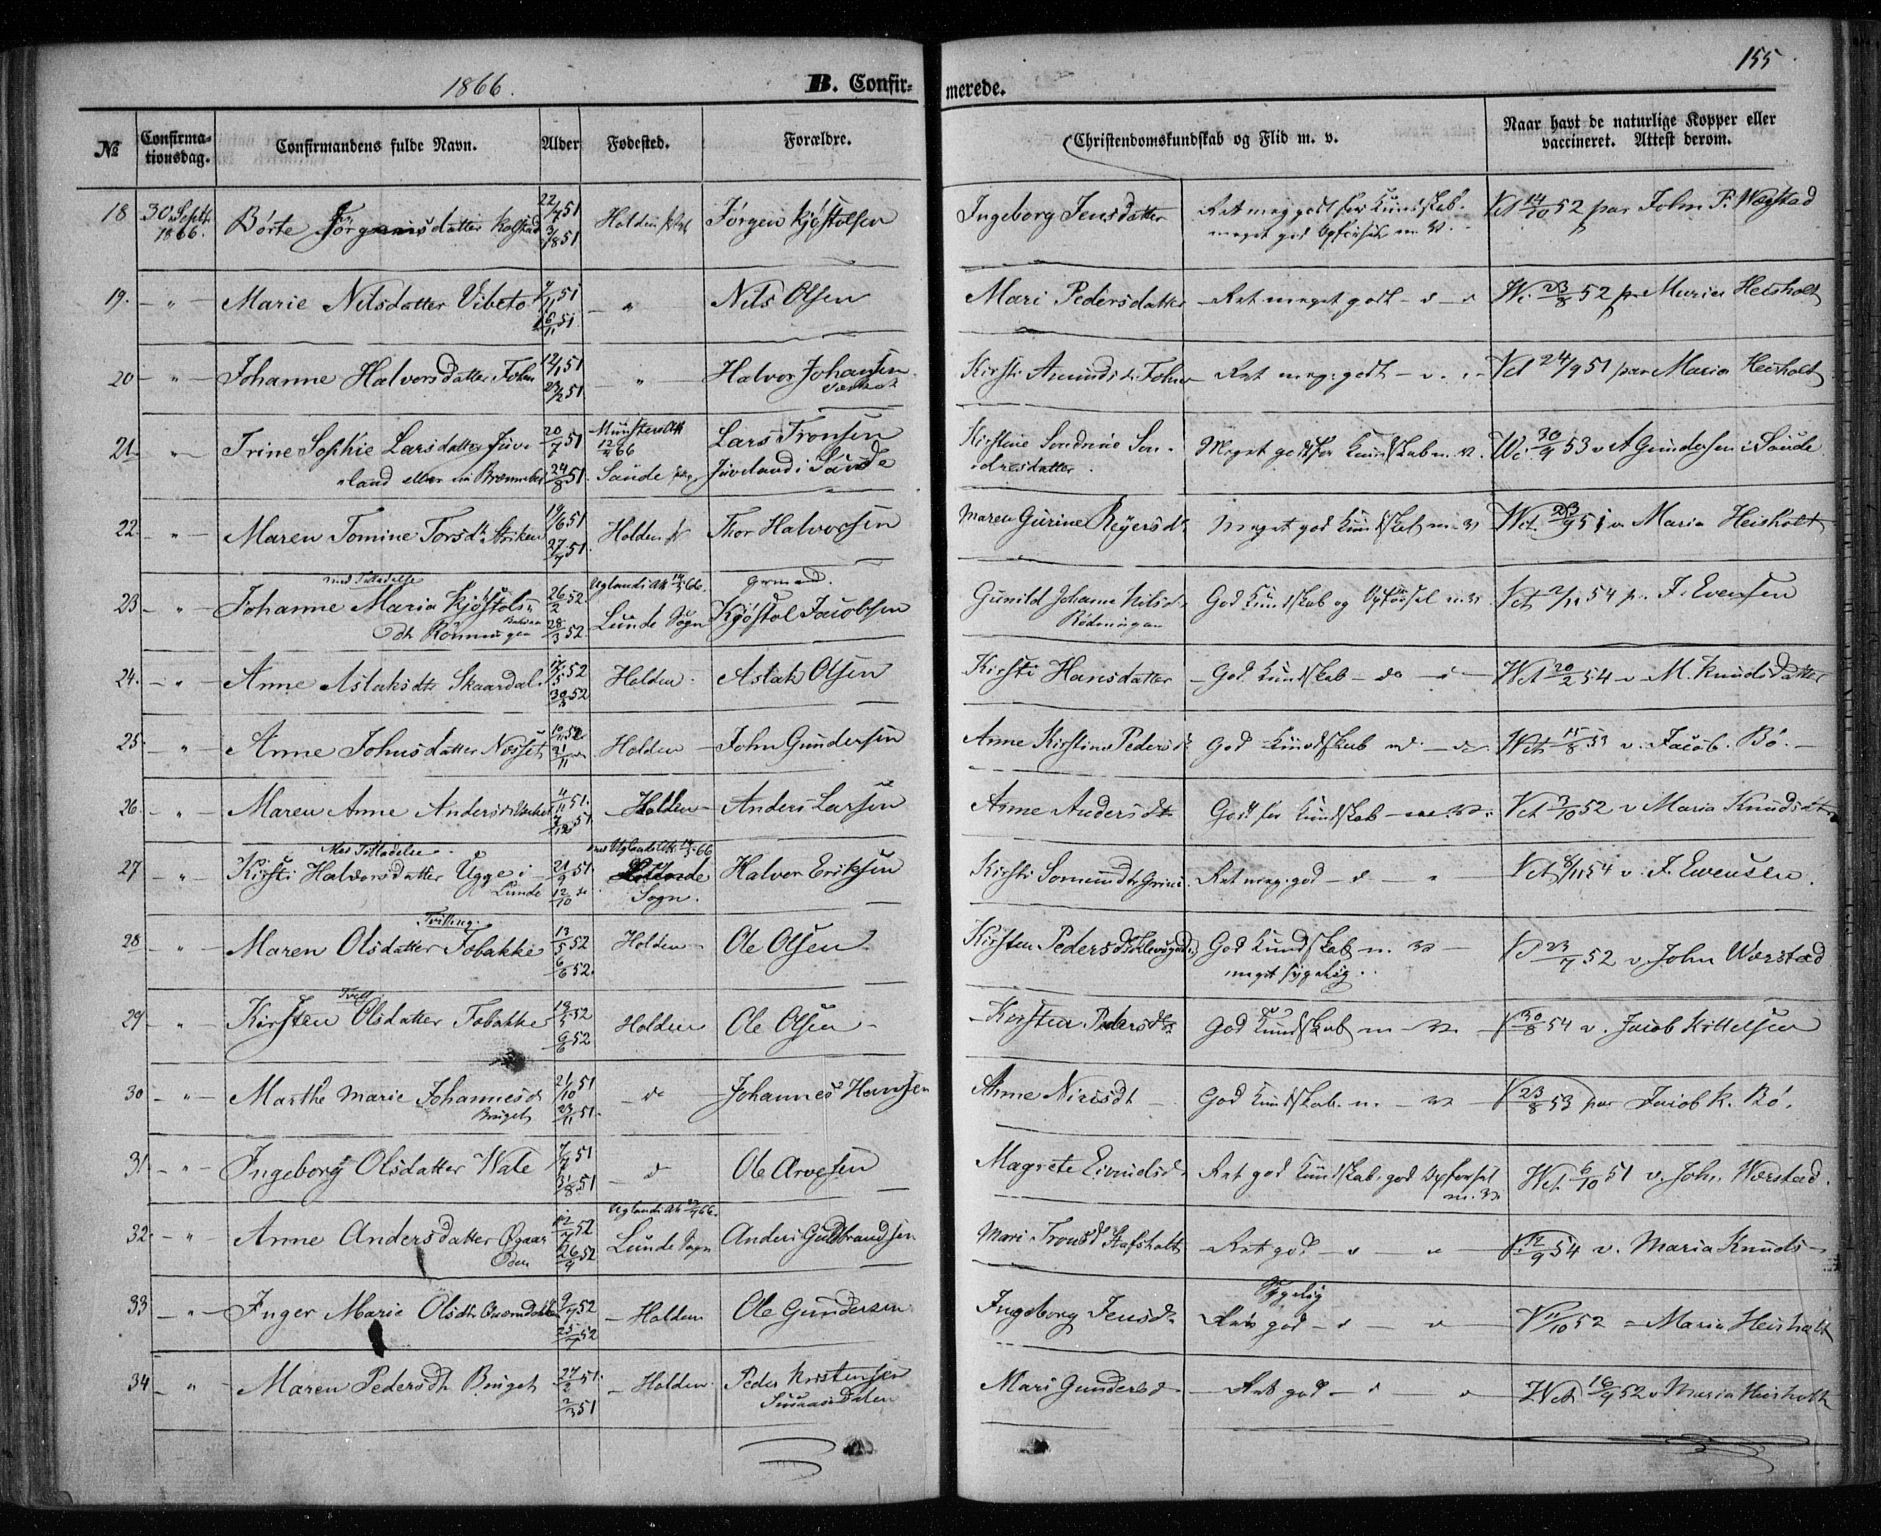 1866.
B. Confir-
merede.
155
№
Confirma-
tionsdag.
Confirmandens fulde Navn.
Alder
Fødested.
Forældre.
Christendomskundskab og Flid m. v.
Naar havt de naturlige Kopper eller
vaccineret. Attest derom.
18 30 Septr 1866. Børte Jörgensdatter Kolstad 22/7 51 3/8 51 Holden Jørgen Kjøstolsen Ingeborg Jensdatter Ret meg godt for Kundskab. meget god Opførsel m. V. Vet 14/10 52 par John P. Wærstad
19. - " - Marie Nilsdatter Vibeto 51 16/11 51 - " Nils Olsen Mari Pedersdatter Ret meget godt - d - d 23/8 52 Heisholt
20 - " - Johanne Halvorsdatter 12/1 51 23/2 51 - " - Halvor Johansen Kirsti Amunds Ret meg: godt Vet 24/9 51 par Maria Heisholt
21 - " - Trine Sophie Larsdatter Juve- land eller 20/7 51 24/8 51. 12/4 66 Saude Lars Tronsen Juveland i Saude Kirstine Sondrine Son- dresdatter Meget godt for Kundskab m. V. 30/9 53 v A Gundersen i Saude
22. - " - Maren Tomine Torsdt 19/6 51 27/7 51. Holden Thor Halvorsen Maren Gurine Reyersdt Meget god Kundskab m. V Vet. 23/9 51 v Maria Heisholt
23 - " - med Tilladelse Johanne Maria Kjøstols- dt Rönningen 26/2 52 28/3 52. Lunde Sogn Kjøstol Jacobsen Gunild Johanne Nilsd. God Kundskab og Opførsel m. V Vet 2/11 54 p. J. Evensen
24. - " - Anne Aslaksdtr Skaardal. 52 30/5 52 Holden. Aslak Olsen Kirsti Hansdatter God Kundskab - do - Vet 20/2 54 v M. Knudsdatter
25. - " - Anne Johnsdatter Noset 52 21/11 Holden John Gundersen Anne Kirstine Peders God Kundskab Vet 15/8 53 v. Jacob. Bø.
26. - " - Maren Anne Anders 11/11 51. 7/12 51 Holden Anders Larsen Anne Andersdt God for Kundskab Vet 3/10 52 v Maria Knudsdtr
27 - " - Med Tilladelse Kirsti Halvorsdatter Ugge i Lunde 21/9 51. 12/10 Lunde Sogn. Halvor Eriksen Kirsti Somundt Ret meg: god - d - " Vet 8/11 54 v. J. Evensen.
28 " Tvilling. Maren Olsdatter Tobakke 13/5 52 6/6 52. Holden Ole Olsen Kirsten Pedersdt God Kundskab m. V meget sygelig. 23/7 52 v. John Wærstad
29 - " Tvill Kirsten Olsdatter Tobakke 13/5 52 6/6 52 Holden Ole Olsen Kirsten Pedersdt God Kundskab m - V. V 30/8 54 v. Jacob Kittelsen
30 - " - Marthe Marie Johannesd Bruget 21/10 51 23/11 51. - do - Johannes Hansen Anne Nirisdt God Kundskab. m. - V V 23/8 53 par Jacob K. Bø.
31. - " - Ingeborg Olsdatter Wale 7/7 51 31/8 51 - d Ole Arvesen Magrete Eivindsd. Ret god Kundskab, god Opførsel m. V Vet. 6/10 51 v. John. Wærstad.
32. - " - Anne Andersdatter Øgaar- den 12/7 52 26/9 52 Lunde Sogn Anders Guldbrandsen Mari Tronsd Ret god - " " 12/9 54 v. Maria Knuds-
33 " Inger Marie Olsdt 9/7 52 25/7 52 - Holden Ole Gundersen Ingeborg Jensd. Sygelig Ret god - d - " V 11/10 52 = Maria Heisholt
34 - " Maren Pedersdt Bruget 27/2 51. 2/3 51 - Holden Peder Kristensen Mari Gundersd. - Ret god - d " Vet 16/9 52 v Maria Heisholt